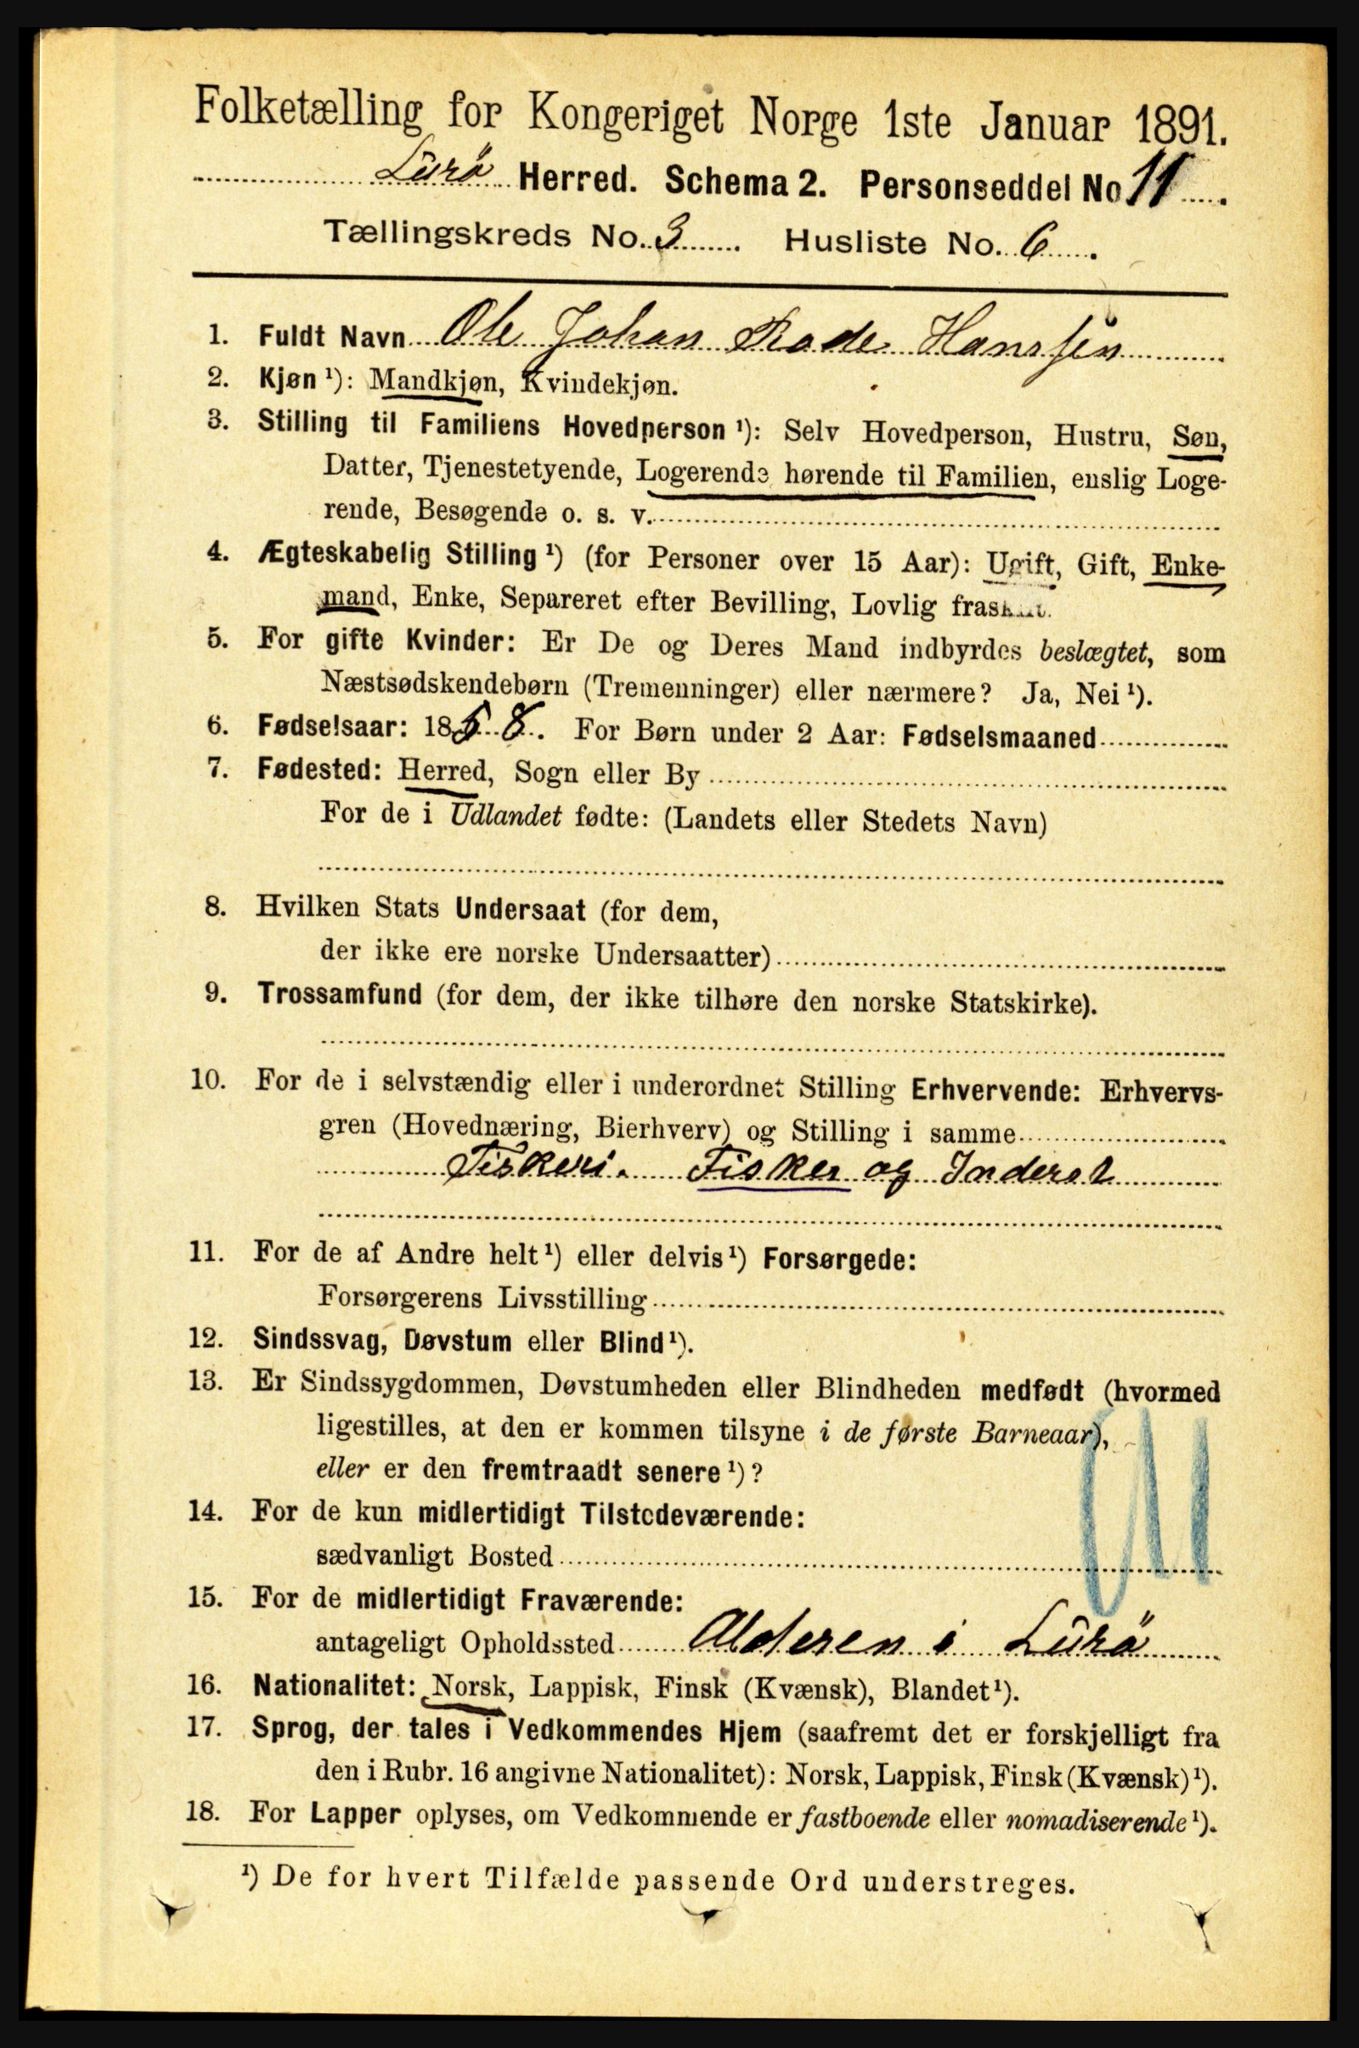 Folketælling for Kongeriget Norge 1ste Januar 1891.
Lurø Herred. Schema 2. Personseddel No 11
Tællingskreds No. 3 Husliste No. 6.
1. Fuldt Navn Ole Johan Rode Hanssen
2. Kjøn ¹): Mandkjøn, Kvindekjøn.
3. Stilling til Familiens Hovedperson ¹): Selv Hovedperson, Hustru, Søn,
Datter, Tjenestetyende, Logerende hørende til Familien, enslig Loge-
rende, Besøgende o. s. v.
4. Ægteskabelig Stilling ¹) (for Personer over 15 Aar): Ugift, Gift, Enke-
mand, Enke, Separeret efter Bevilling, Lovlig fraskilt.
5. For gifte Kvinder: Er De og Deres Mand indbyrdes beslægtet, som
Næstsødskendebørn (Tremenninger) eller nærmere? Ja, Nei ¹).
6. Fødselsaar: 1858. For Børn under 2 Aar: Fødselsmaaned
7. Fødested: Herred, Sogn eller By
For de i Udlandet fødte: (Landets eller Stedets Navn)
8. Hvilken Stats Undersaat (for dem,
der ikke ere norske Undersaatter)
9. Trossamfund (for dem, der ikke tilhøre den norske Statskirke).
10. For de i selvstændig eller i underordnet Stilling Erhvervende: Erhvervs-
gren (Hovednæring, Bierhverv) og Stilling i samme
Fiskeri. Fisker og Inderst
11. For de af Andre helt ¹) eller delvis ¹) Forsørgede:
Forsørgerens Livsstilling
12. Sindssvag, Døvstum eller Blind ¹).
13. Er Sindssygdommen, Døvstumheden eller Blindheden medfødt (hvormed
ligestilles, at den er kommen tilsyne i de første Barneaar),
eller er den fremtraadt senere ¹)?
14. For de kun midlertidigt Tilstedeværende:
sædvanligt Bosted
15. For de midlertidigt Fraværende:
antageligt Opholdssted Alderen i Lurø
16. Nationalitet: Norsk, Lappisk, Finsk (Kvænsk), Blandet ¹).
17. Sprog, der tales i Vedkommendes Hjem (saafremt det er forskjelligt fra
den i Rubr. 16 angivne Nationalitet): Norsk, Lappisk, Finsk (Kvænsk) ¹).
18. For Lapper oplyses, om Vedkommende er fastboende eller nomadiserende ¹).
¹) De for hvert Tilfælde passende Ord understreges.